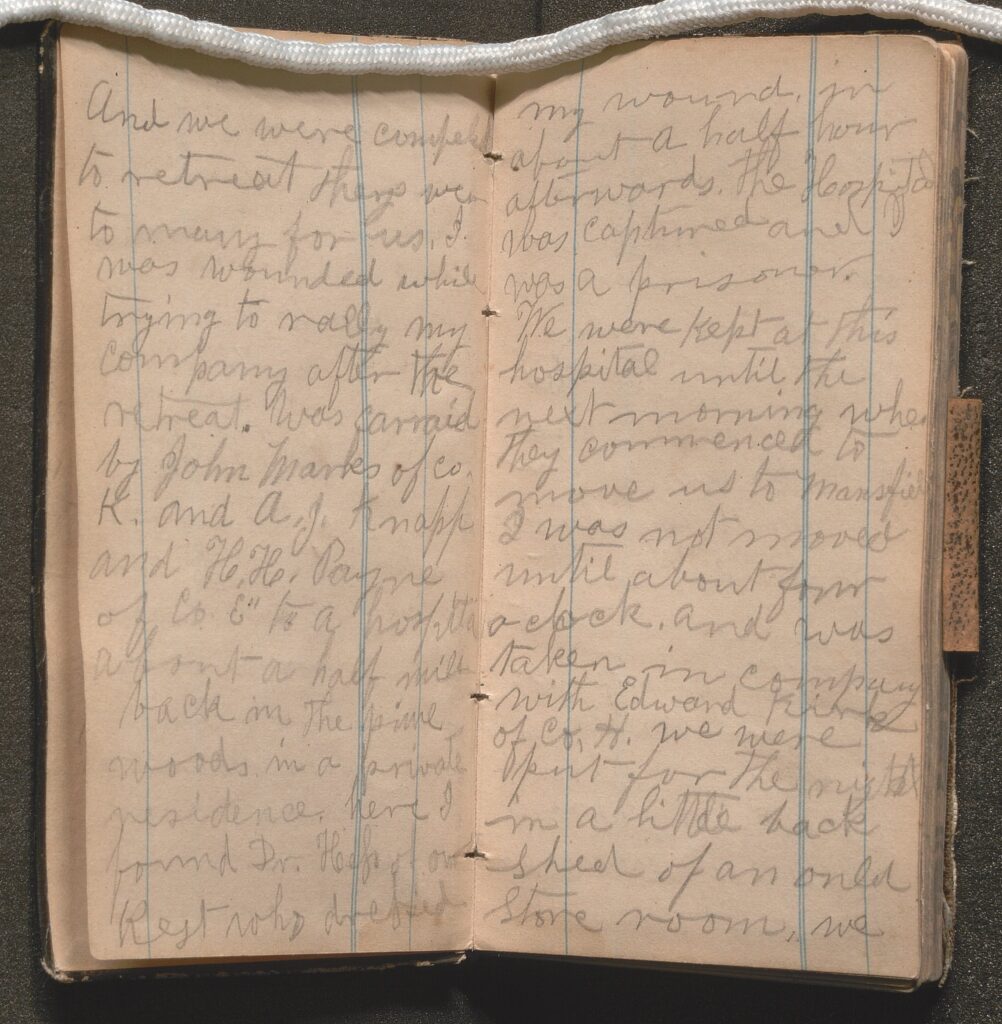 And we were compell
to retreat theys wer
to many for us. I.
was wounded while
trying to rally my
company after the
retreat. Was carraid
by John Marks of Co.
K. and A. J. Knapp
and H. H. Payne
of Co. E" to a hospita
about a half mile
back in the pine
woods. in a private
residence. here I
found Dr. Hess of our
Regt who dressed
my wound. in
about a half hour
afterwards. the Hospital
was captured and I
was a prisonor.
We were kept at this
hospital until the
next morning when
they commenced to
move us to Mansfield
I was not moved
until about four
oclock. and was
taken in company
with Edward Kirk
of Co. H. we were
put for the night
in a little back
shed of an onld
Store room, we